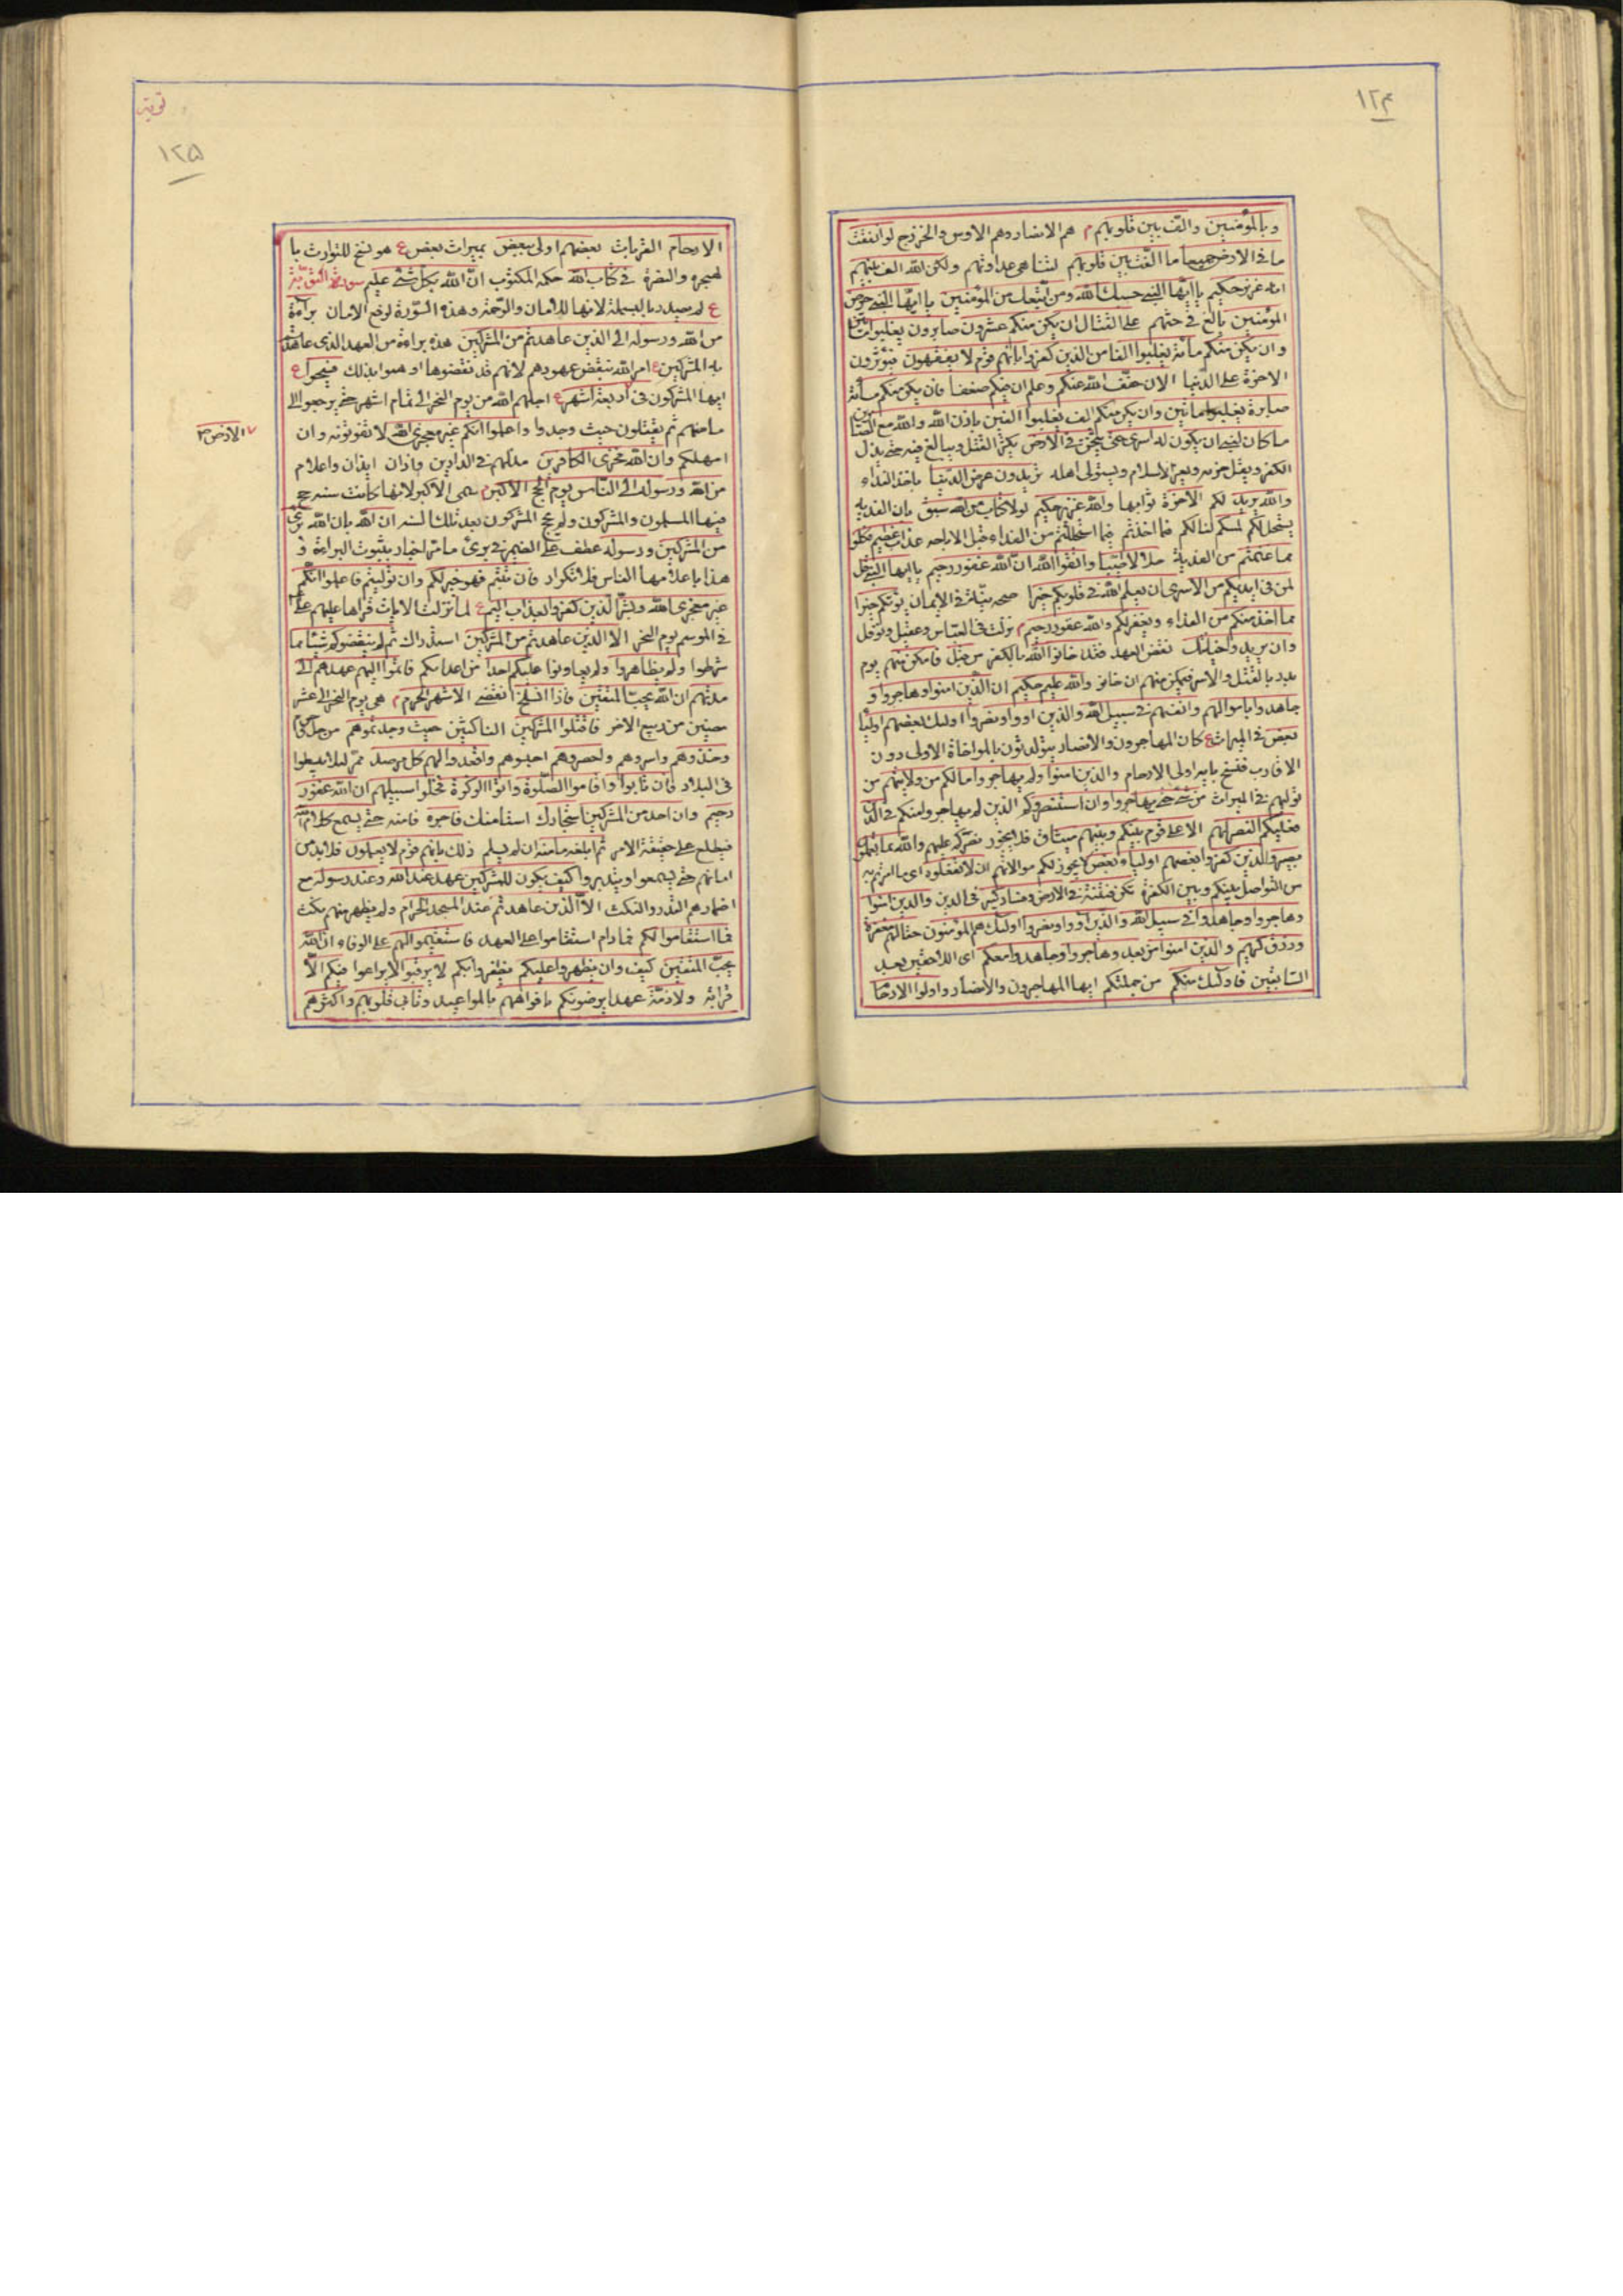 ١٢۴
وبالمؤمنين والف بين قلوبهم م هم الانصار وهم الاوس والخزرج لو انفقت
ما فى الارض جميعا ما الفت بين قلوبهم لتناهى عداوتهم ولكن الله الف بينهم
انه عزيز حكيم يا ايها النبى حسبك الله ومن اتبعك من المؤمنين يا ايها النبى حرض
المؤمنين بالغ فى حثهم على القتال ان يكن منكم عشرون صابرون يغلبوا مأتين
وان يكن منكم مأة يغلبوا الفا من الذين كفروا بانهم قوم لا يفقهون فيؤثرون
الاخرة على الدنيا الان خفف الله عنكم وعلم ان فيكم ضعفا فان يكن منكم مأة
صابرة يغلبوا مأتين وان يكن منكم الف يغلبوا الفين باذن الله والله مع الصابرين
ما كان لنبى ان يكون له اسرى حتى يثخن فى الارض يكثر القتل ويبالغ فيه حتى يذل
الكفر ويقل حزبه ويعز الاسلام ويستولى اهله تريدون عرض الدنيا باخذ الفداء
والله يريد لكم الاخرة ثوابها والله عزيز حكيم لولا كتاب من الله سبق بان الفدية
ستحل لكم لمسكم لنالكم فما اخذتم فيما استحللتم من الفداء قبل الاباحه عذاب عظيم فكلوا
مما غنمتم من الفدية حلالا طيبا واتقوا الله ان الله غفور رحيم يا ايها النبى قل
لمن فى ايديكم من الاسرى ان يعلم الله فى قلوبكم خيرا صحه نيات فى الايمان يؤتكم خيرا
مما اخذ منكم من الفداء ويغفر لكم والله غفور رحيم م نزلت فى العباس وعقيل ونوفل
وان يريدوا خيانتك نقض العهد فقد خانوا الله بالكفر من قبل فامكن منهم يوم
بدر بالقتل والاسر فيمكن منهم ان خانوا والله عليم حكيم ان الذين امنوا وهاجروا و
جاهدوا باموالهم وانفسهم فى سبيل الله والذين اووا ونصروا اولئك بعضهم اولياء
بعض فى الميراث ع كان المهاجرون والانصار يتوارثون بالمواخاة الاولى دون
الاقارب فنسخ باية اولى الارحام والذين امنوا ولم يهاجروا ما لكم من ولايتهم من
توليهم فى الميراث من شئ حتى يهاجروا وان استنصروكم الذين لم يهاجروا منكم فى الدين
فعليكم النصر لهم الا على قوم بينكم وبينهم ميثاق فلا يجوز نصركم عليهم والله بما تعملون
بصير والذين كفروا بعضهم اولياء بعض لا يجوز لكم موالاتهم ان لا تفعلوه اى ما امرتم به
من التواصل بينكم وبين الكفرة تكن فتنة فى الارض وفساد كبير فى الدين والذين امنوا
وهاجروا وجاهدوا فى سبيل الله والذين اووا ونصروا اولئك هم المؤمنون حقا لهم مغفرة
ورزق كريم والذين امنوا من بعد وهاجروا وجاهدوا معكم اى اللاحقين بعد
السابقين فاولئك منكم من جملتكم ايها المهاجرون والانصار واولوا الارحا
توبة
١٢۵
الارحام القرابات بعضهم اولى ببعض بميراث بعض ع هو نسخ للتوارث با
لهجره والنصرة فى كتاب الله حكمه المكتوب ان الله بكل شئ عليم سورة التوبة
ع لم يصدر بالبسملة لانها للامان والرحمة وهذه السورة لرفع الامان براءة
من الله ورسوله الى الذين عاهدتم من المشركين هذه براءة من العهد الذى عاهدتم
به المشركين ع امر الله بنقض عهودهم لانهم قد نقضوها او هموا بذلك فسيحوا ع
ايها المشركون فى اربعة اشهر ع اجلهم الله من يوم النحر الى تمام اشهر حتى يرجعوا الى
مأمنهم ثم يقتلون حيث وجدوا واعلموا انكم غير معجزى الله لا تفوتونه وان
امهلكم وان الله مخزى الكافرين مذلهم فى الدارين واذان ايذان واعلام
من الله ورسوله الى الناس يوم الحج الاكبر م سمى الاكبر لانها كانت سنه حج
فيها المسلمون والمشركون ولم يحج المشركون بعد تلك السنه ان الله بان الله برئ
من المشركين ورسوله عطف على الضمير فى برئ ما مر اخبار بثبوت البراءة و
هذا باعلامها الناس فلا تكرار فان تبتم فهو خير لكم وان توليتم فاعلموا انكم
غير معجزى الله وبشر الذين كفروا بعذاب اليم ع لما نزلت الايات قراها عليهم على
فى الموسم يوم النحر الا الذين عاهدتم من المشركين استدراك ثم لم ينقضوكم شيئا مما
شرطوا ولم يظاهروا ولم يعاونوا عليكم احدا من اعدائكم فاتموا اليهم عهدهم الى
مدتهم ان الله يحب المتقين فاذا انسلخ انقضى الاشهر الحرم م هى يوم النحر الى عشر
مضين من ربيع الاخر فاقتلوا المشركين الناكثين حيث وجدتموهم من حل
وخذوهم واسروهم واحصروهم احبسوهم واقعدوا لهم كل مرصد ممر لئلا يبسطوا
فى البلاد فان تابوا واقاموا الصلوة واتوا الزكوة فخلوا سبيلهم ان الله غفور
رحيم وان احد من المشركين استجارك استأمنك فاجره فامنه حتى يسمع كلام الله
فيطلع على حقيقة الامر ثم ابلغه مأمنه ان لم يسلم ذلك بانهم قوم لا يعلمون فلا بد من
امانهم حتى يسمعوا ويتدبروا كيف يكون للمشركين عهد عند الله وعند رسوله مع
اضمارهم الغدر والنكث الا الذين عاهدتم عند المسجد الحرام ولم يظهر منهم نكث
فما استقاموا لكم فما دام استقاموا على العهد فاستقيموا لهم على الوفاء ان الله
يحب المتقين كيف وان يظهروا عليكم يظفروا بكم لا يرقبوا لا يراعوا فيكم الا
قرابة ولا ذمة عهدا يرضونكم بافواههم بالمواعيد وتابى قلوبهم واكثرهم
الارض